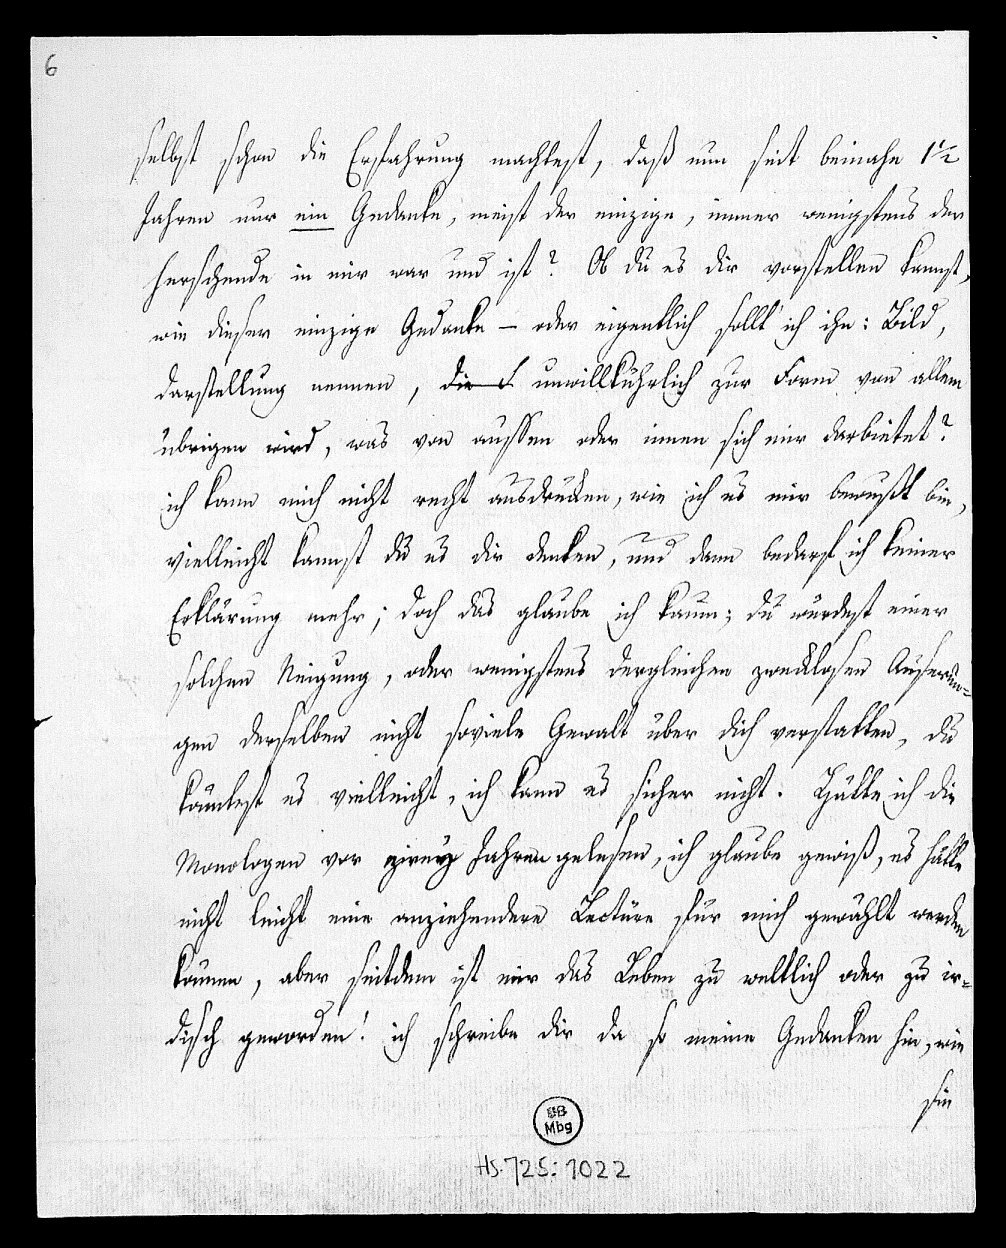 6
selbst schon die Erfahrung machtest, daß nun seit beinahe 1½
Jahren nur ein Gedanke, meist der einzige, immer wenigstens der
herschende in mir war und ist? Ob du es dir vorstellen kannst,
wie dieser einzige Gedanke – oder eigentlich sollt ich ihn: Bild,
Darstellung nennen, die f unwillkührlich zur Form von allem
übrigen wird, was von aussen oder innen sich mir darbietet?
ich kann mich nicht recht ausdrücken, wie ich es mir bewußt bin,
vielleicht kannst du es dir denken, und dann bedarf ich keiner
Erklärung mehr; doch das glaube ich kaum; du würdest einer
solchen Neigung, oder wenigstens dergleichen zwecklosen Äuserun=
gen derselben nicht soviele Gewalt über dich verstatten, du
könntest es vielleicht, ich kann es sicher nicht. Hätte ich die
Monologen vor zwey Jahren gelesen, ich glaube gewiß, es hätte
nicht leicht eine anziehendere Lectüre für mich gewählt werden
können, aber seitdem ist mir das Leben zu weltlich oder zu ir=
disch geworden! ich schreibe dir da so meine Gedanken hin, wie
sie
UB
Mbg
Hs. 725:1022